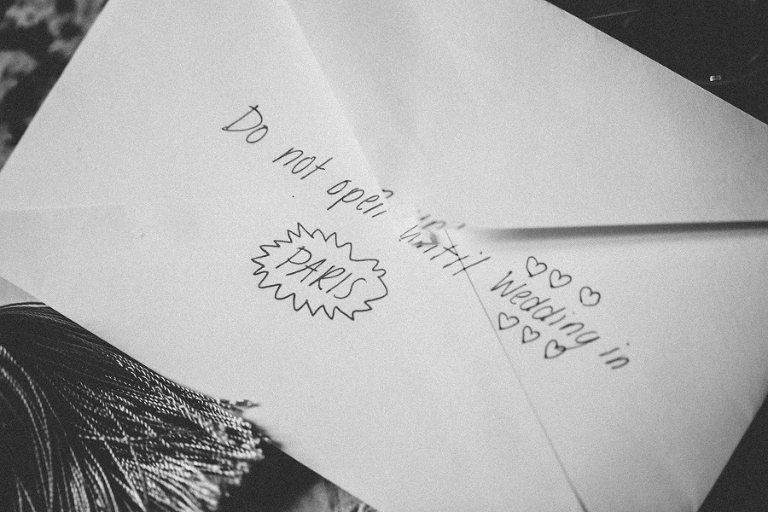 Do not open until Wedding in
PARIS